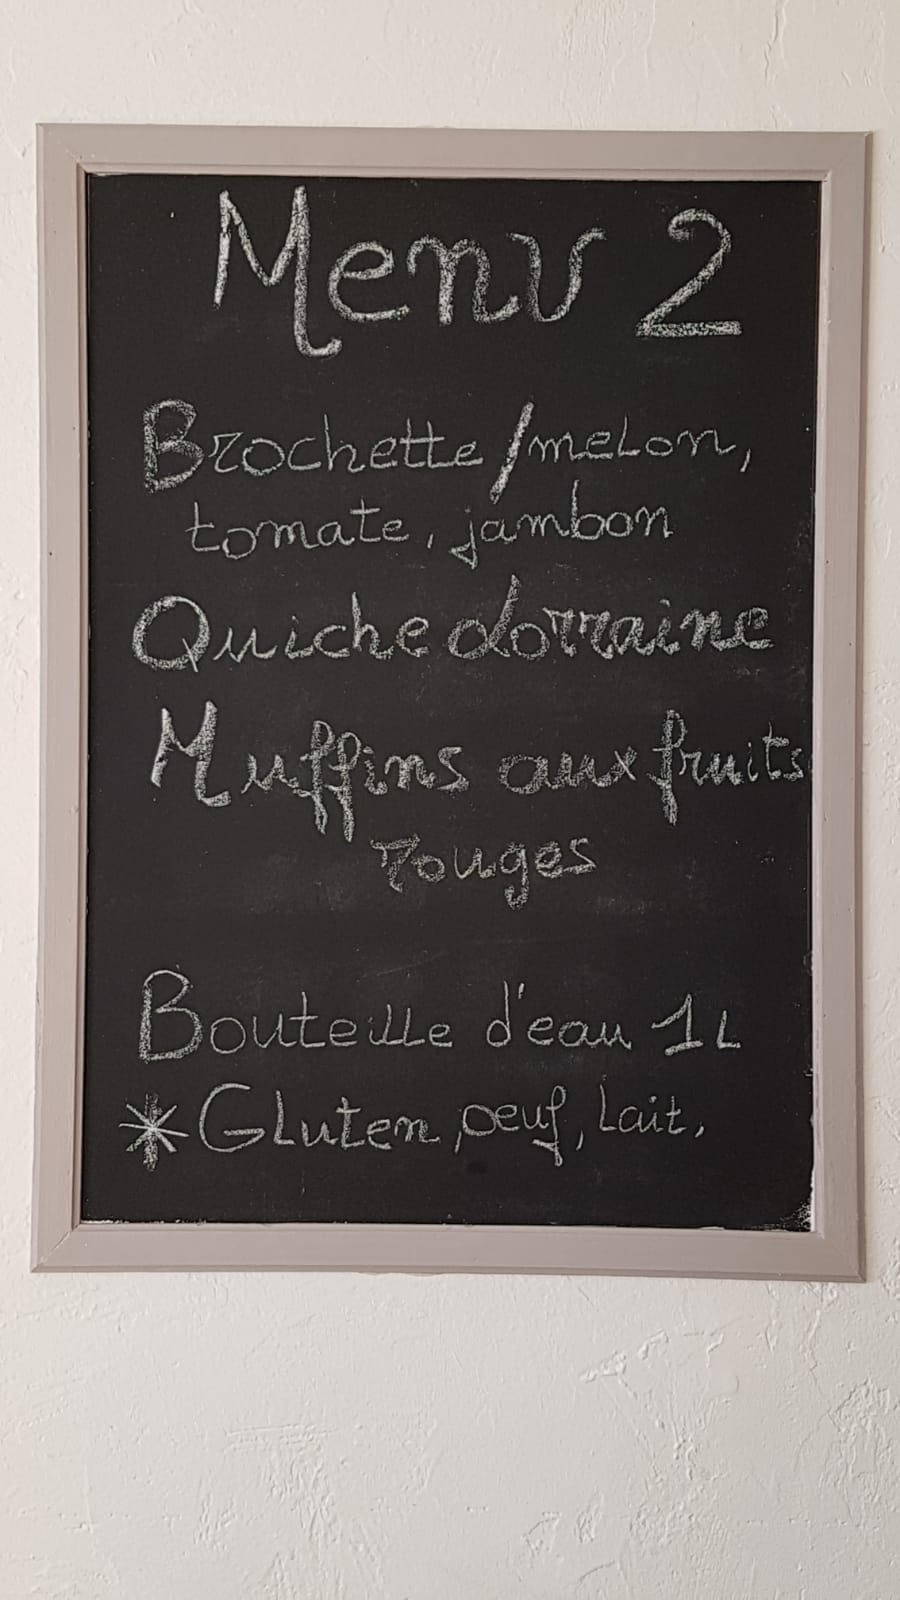 Menu 2
Brochette/melon,
tomate, jambon
Quiche Lorraine
Muffins aux fruits
rouges
Bouteille d'eau 1L
*Gluten, oeuf, lait,